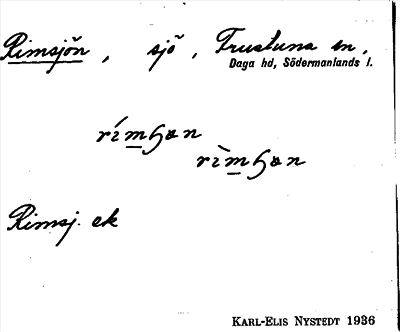 Rimsjön, sjö, Frustuna sn,
Daga hd, Södermanlands l.
Rimsj. ek
KARL-ELIS NYSTEDT 1936